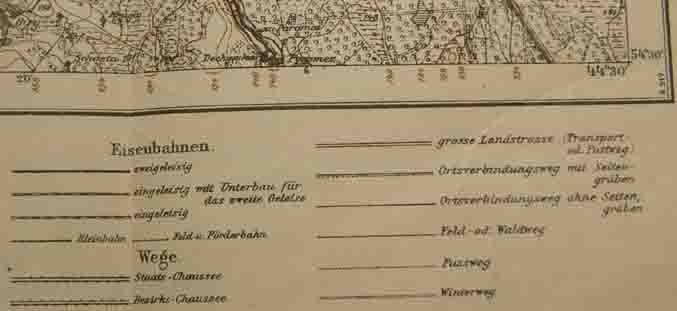 54°30'
20'
44°30'
Eisenbahnen.
zweigeleisig
eingeleisig mit Unterbau für
das zweite Geleise
eingleisig
Kleinbahn
Feld u. Förderbahn
Wege
Staats-Chaussee
Bezirks-Chaussee
grosse Landstrasse (Transport-
od. Postweg)
Ortsverbindungsweg mit Seiten-
gräben
Ortsverbindungsweg ohne Seiten,
gräben
Feld-od. Waldweg
Fussweg
Winterweg